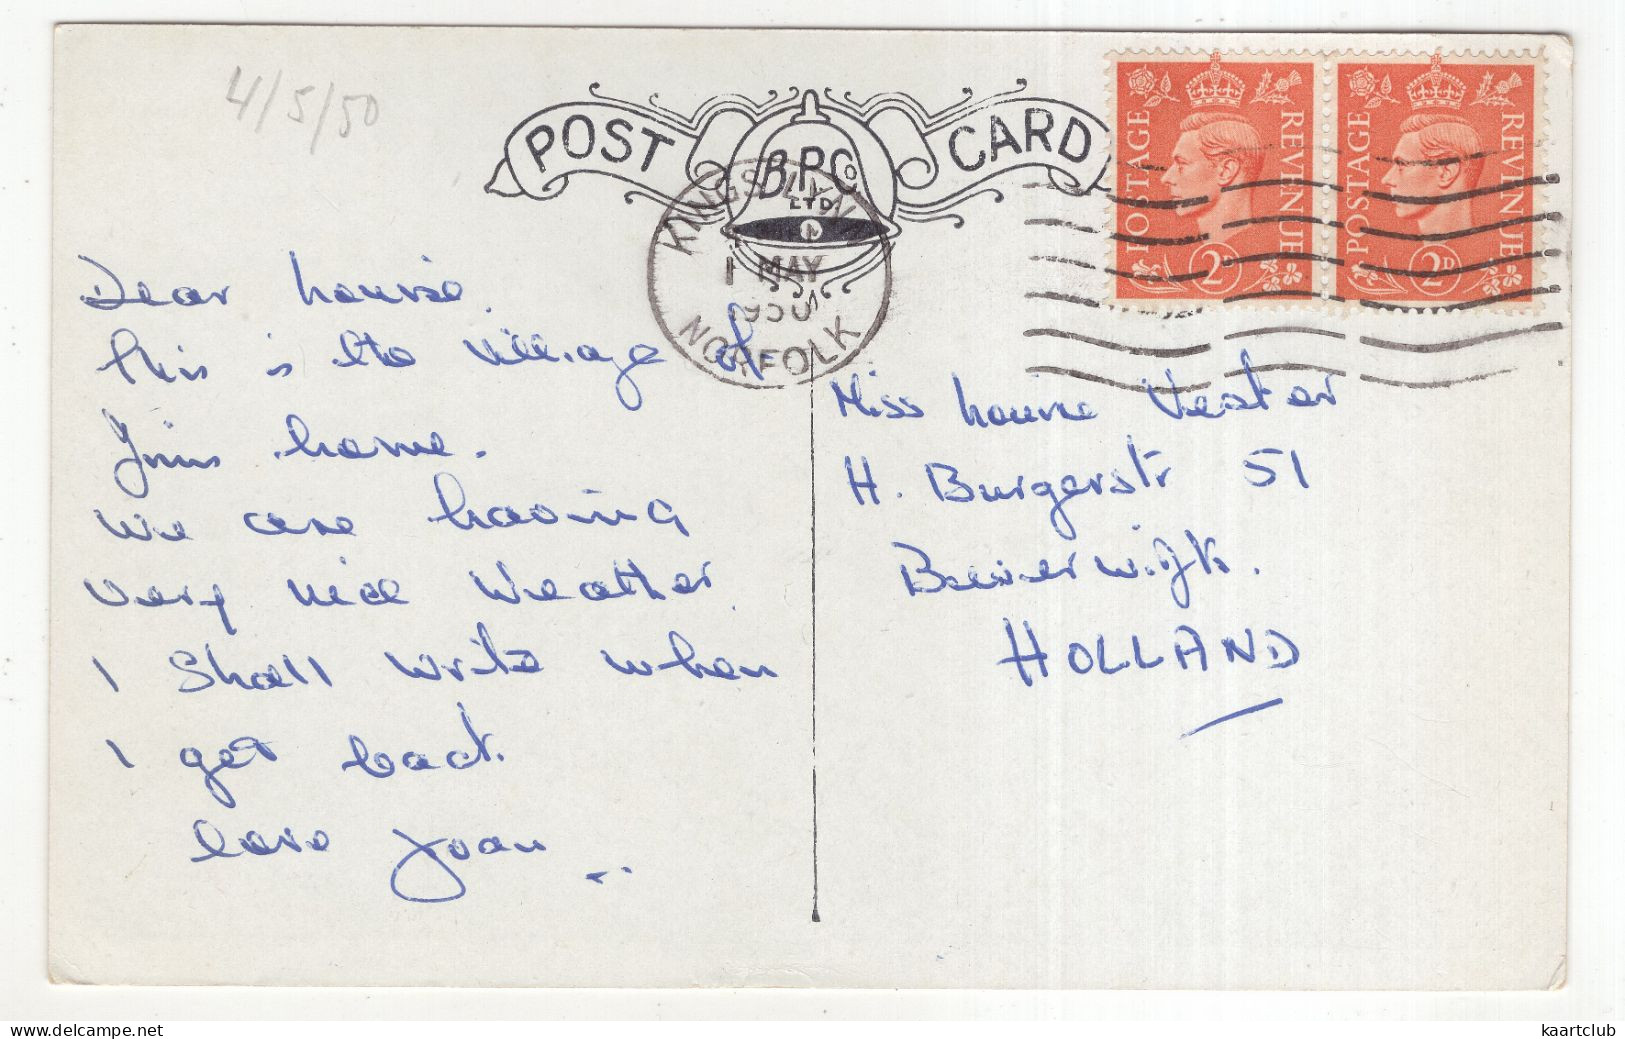 4/5/50
POST CARD
B.P.Co
LTD.
KINGS LYNN
1 MAY
NORFOLK
POSTAGE REVENUE
2D
POSTAGE REVENUE
2D
Dear Louise.
This is the village of
Jim's home.
We are having
very nice Weather.
I Shall write when
I get back.
Love Joan
Miss Louise Vester
H. Burgerstr 51
Beverwijk.
HOLLAND
kaartclub